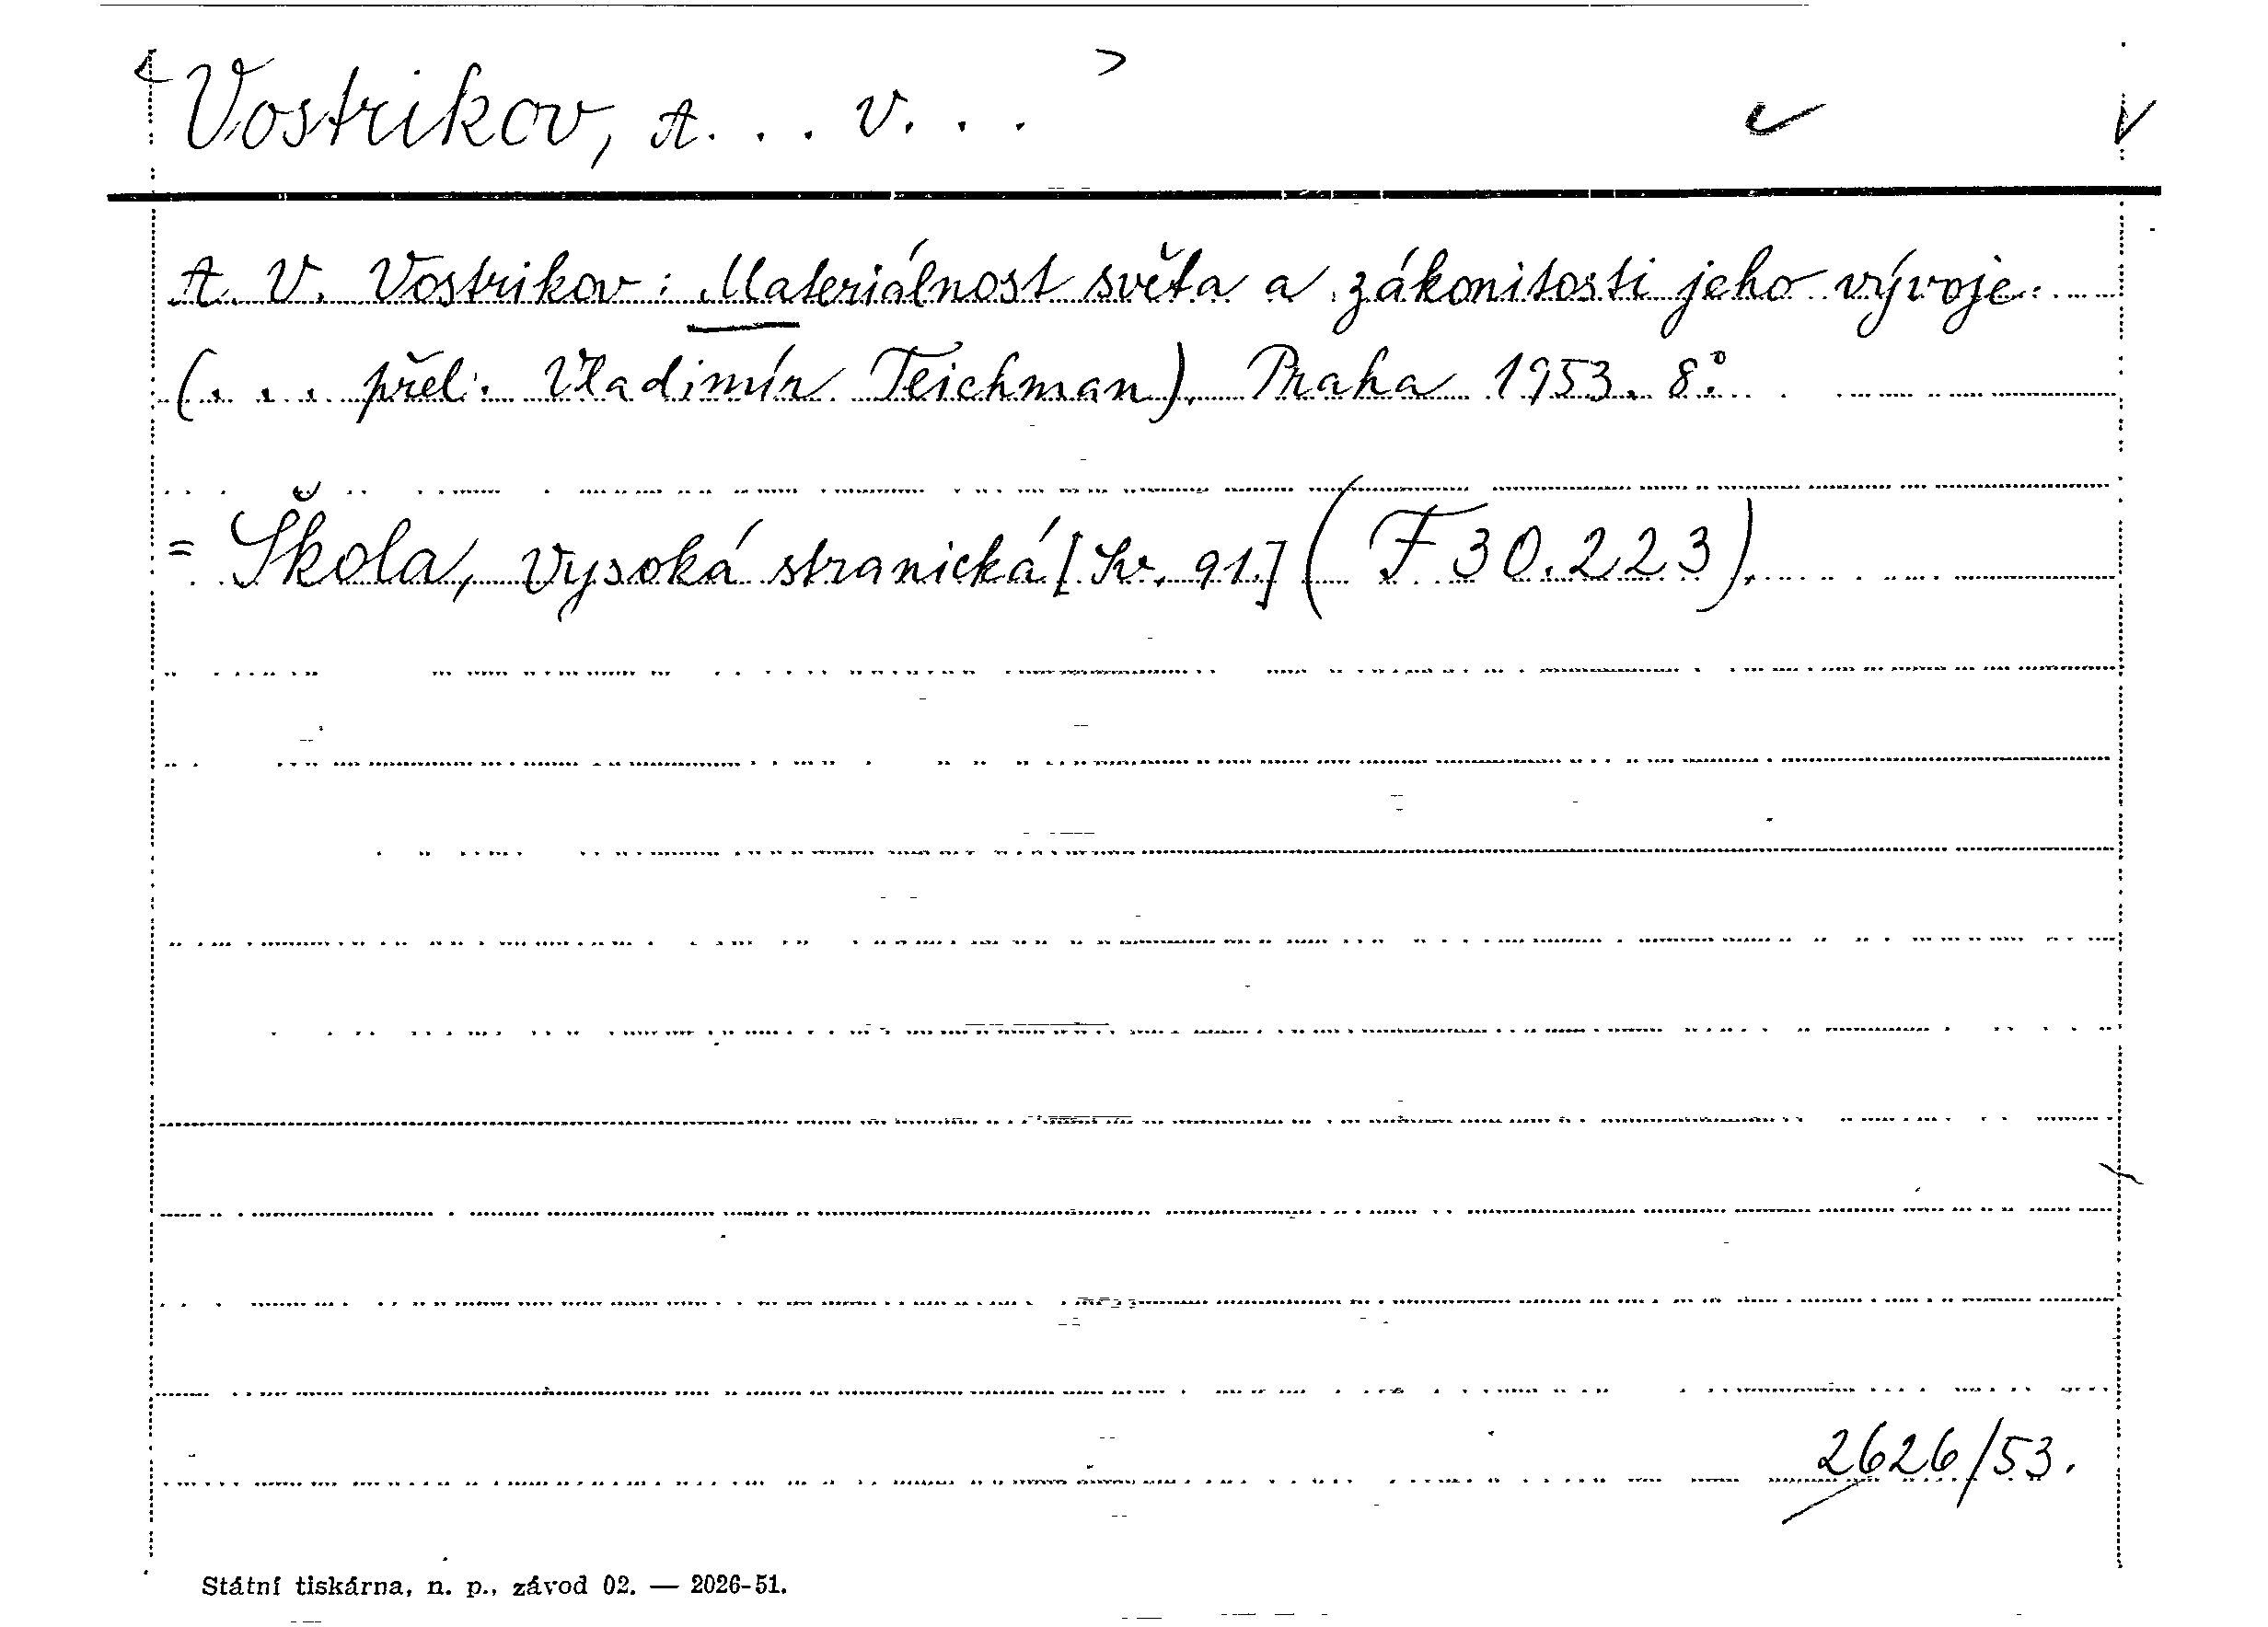 <Vostrikov, A. . . V. . . >
A. V. Vostrikov: Materiálnost světa a zákonitosti jeho vývoje.
(. . . přel. Vladimír Teichman). Praha 1953. 8°.
= Škola, Vysoká stranická [Sv. 91.] (F 30.223).
2626/53.
Státní tiskárna, n. p., závod 02. — 2026-51.